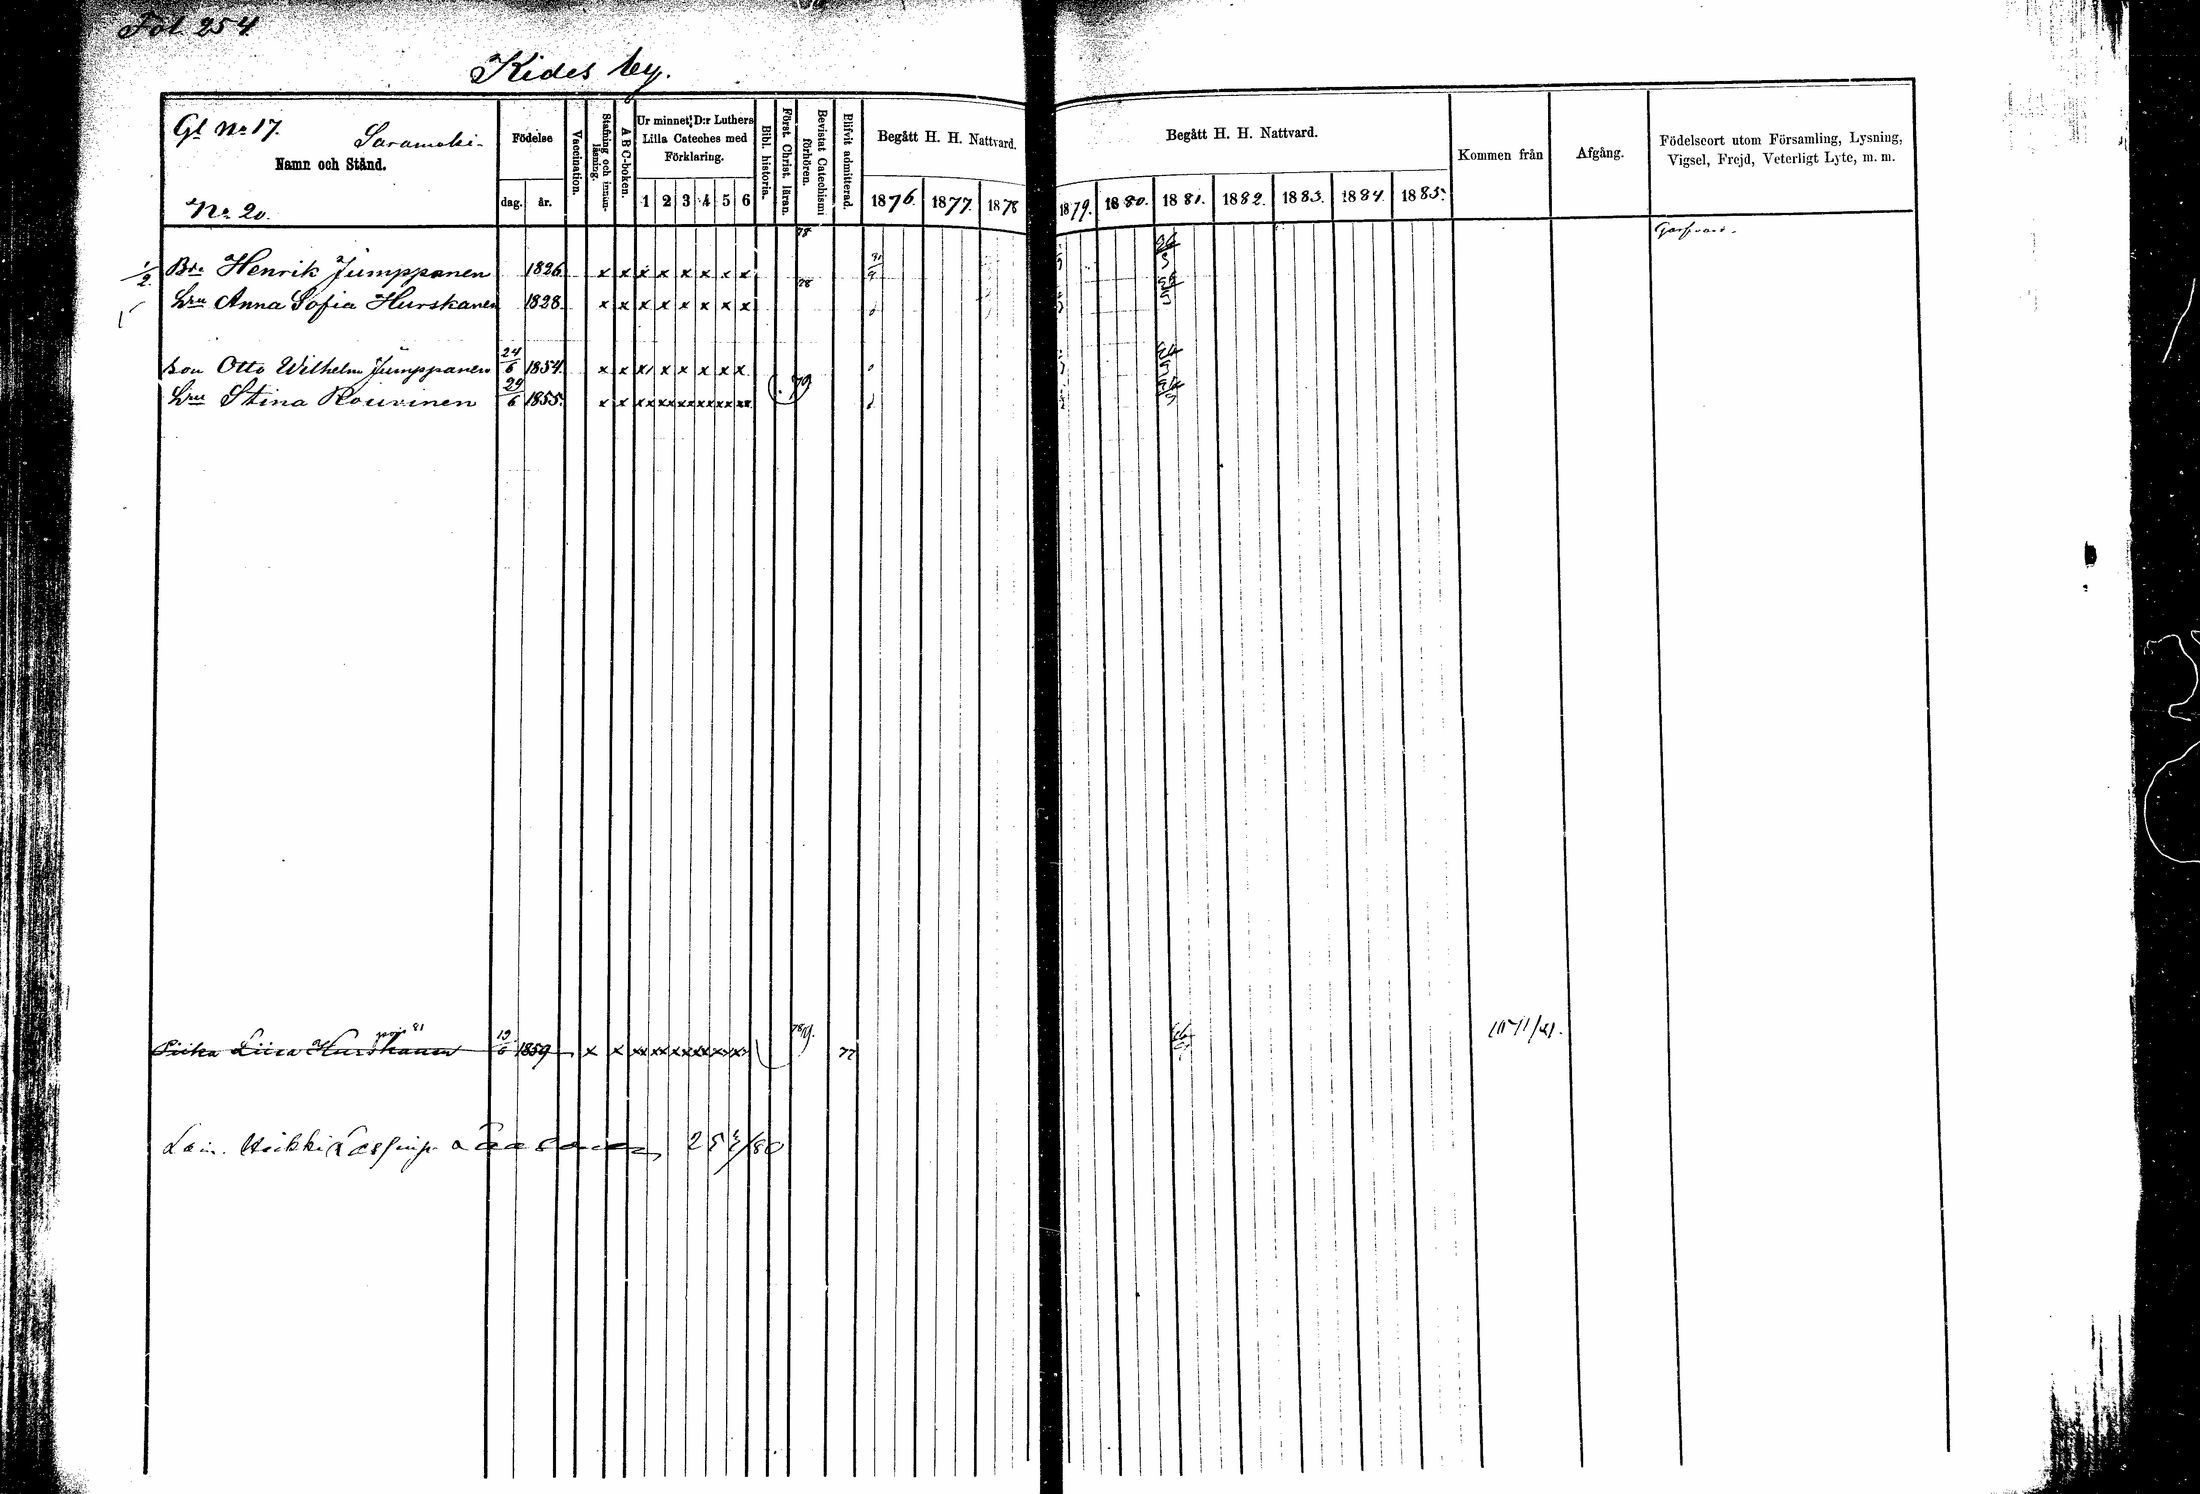 Fol 254
Kides by.
Gl No 17.
Saramäki
Namn och Stånd.
No 20.
Födelse
dag. år.
Vaccination.
Stafning och innanläsning.
A B C-boken.
Ur minnet: D:r Luthers Lilla Cateches med Förklaring.
1 2 3 4 5 6
Bibl. historia.
Först. Christ. läran.
Bevistat Catechismi förhören.
Blifvit admitterad.
Begått H. H. Nattvard.
1876. 1877. 1878
Begått H. H. Nattvard.
1879. 1880. 1881. 1882. 1883. 1884. 1885.
Kommen från
Afgång.
Födelseort utom Församling, Lysning, Vigsel, Frejd, Veterligt Lyte, m. m.
1/2 Bde Henrik Jumppanen 1826 x x x x x x x x 78
hru Anna Sofia Hurskanen 1828 x x x x x x x x 78
son Otto Wilhelm Jumppanen 24/6 1854 x x x x x x x x
hru Stina Rouvinen 29/6 1855. x x xx xx xx xx xx xx 79
Piika Liisa Hurskanen 13/6 1859 x x xx xx xx xx xx xx 78/9. 77
Heikki 80